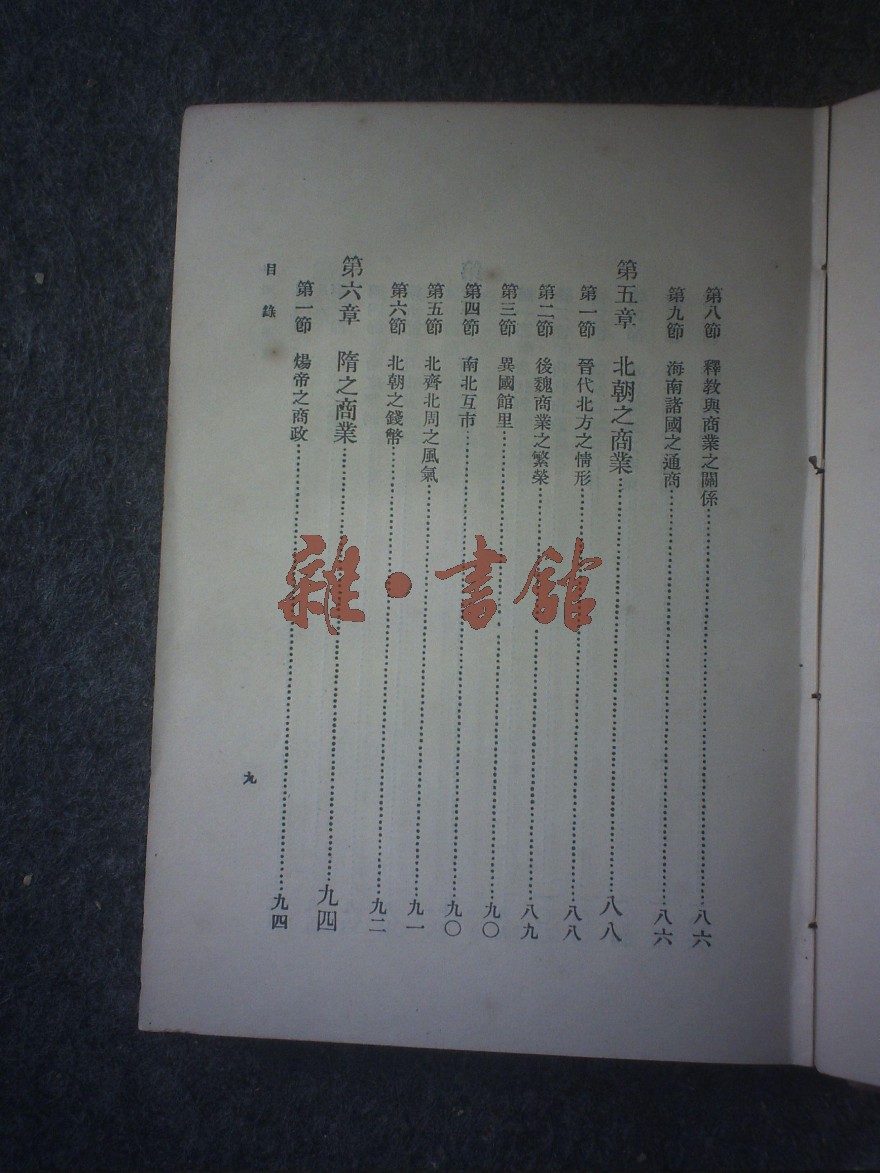 第八節　釋教與商業之關係……八六
第九節　海南諸國之通商……八六
第五章　北朝之商業……八八
第一節　晉代北方之情形……八八
第二節　後魏商業之繁榮……八九
第三節　異國館里……九〇
第四節　南北互市……九〇
第五節　北齊北周之風氣……九一
第六節　北朝之錢幣……九二
第六章　隋之商業……九四
第一節　煬帝之商政……九四
目錄
九
雜·書館